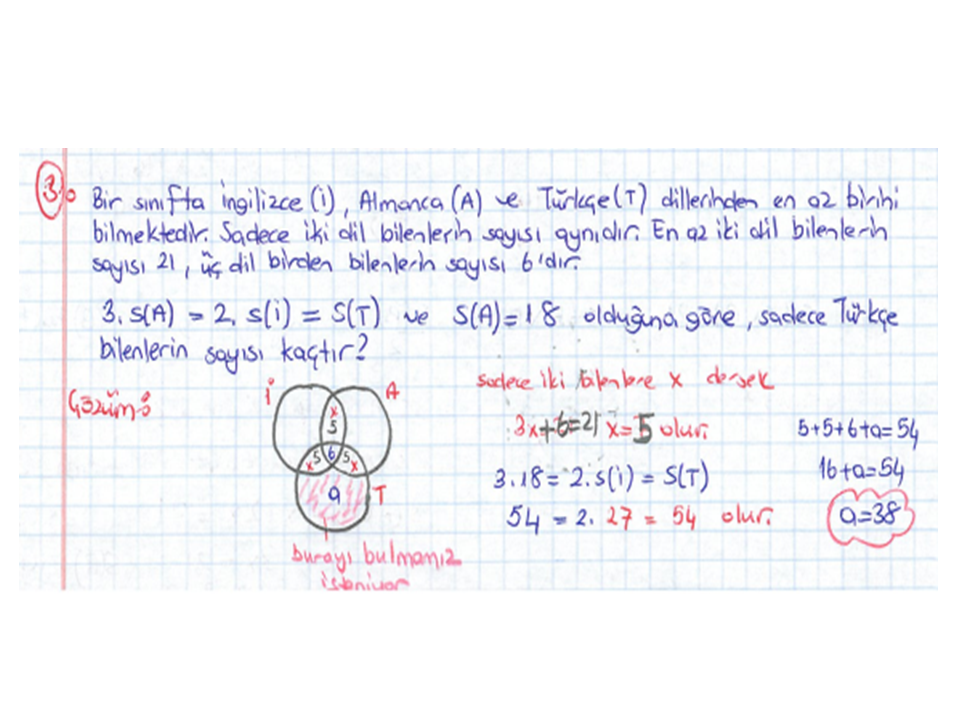 3. Bir sınıfta İngilizce (i), Almanca (A) ve Türkçe (T) dillerinden en az birini
bilmektedir. Sadece iki dil bilenlerin sayısı aynıdır. En az iki dil bilenlerin
sayısı 21, üç dil birden bilenlerin sayısı 6'dır.
3. s(A) = 2. s(i) = S(T) ve S(A)=18 olduğuna göre, sadece Türkçe
bilenlerin sayısı kaçtır?
Çözüm:
i
A
x
5
x 5 6 5 x
a
T
burayı bulmamız
isteniyor
sadece iki bilenlere x dersek
3x+6=21 x=5 olur.
3.18 = 2.s(i) = S(T)
54 = 2. 27 = 54 olur.
5+5+6+a=54
16+a=54
a=38